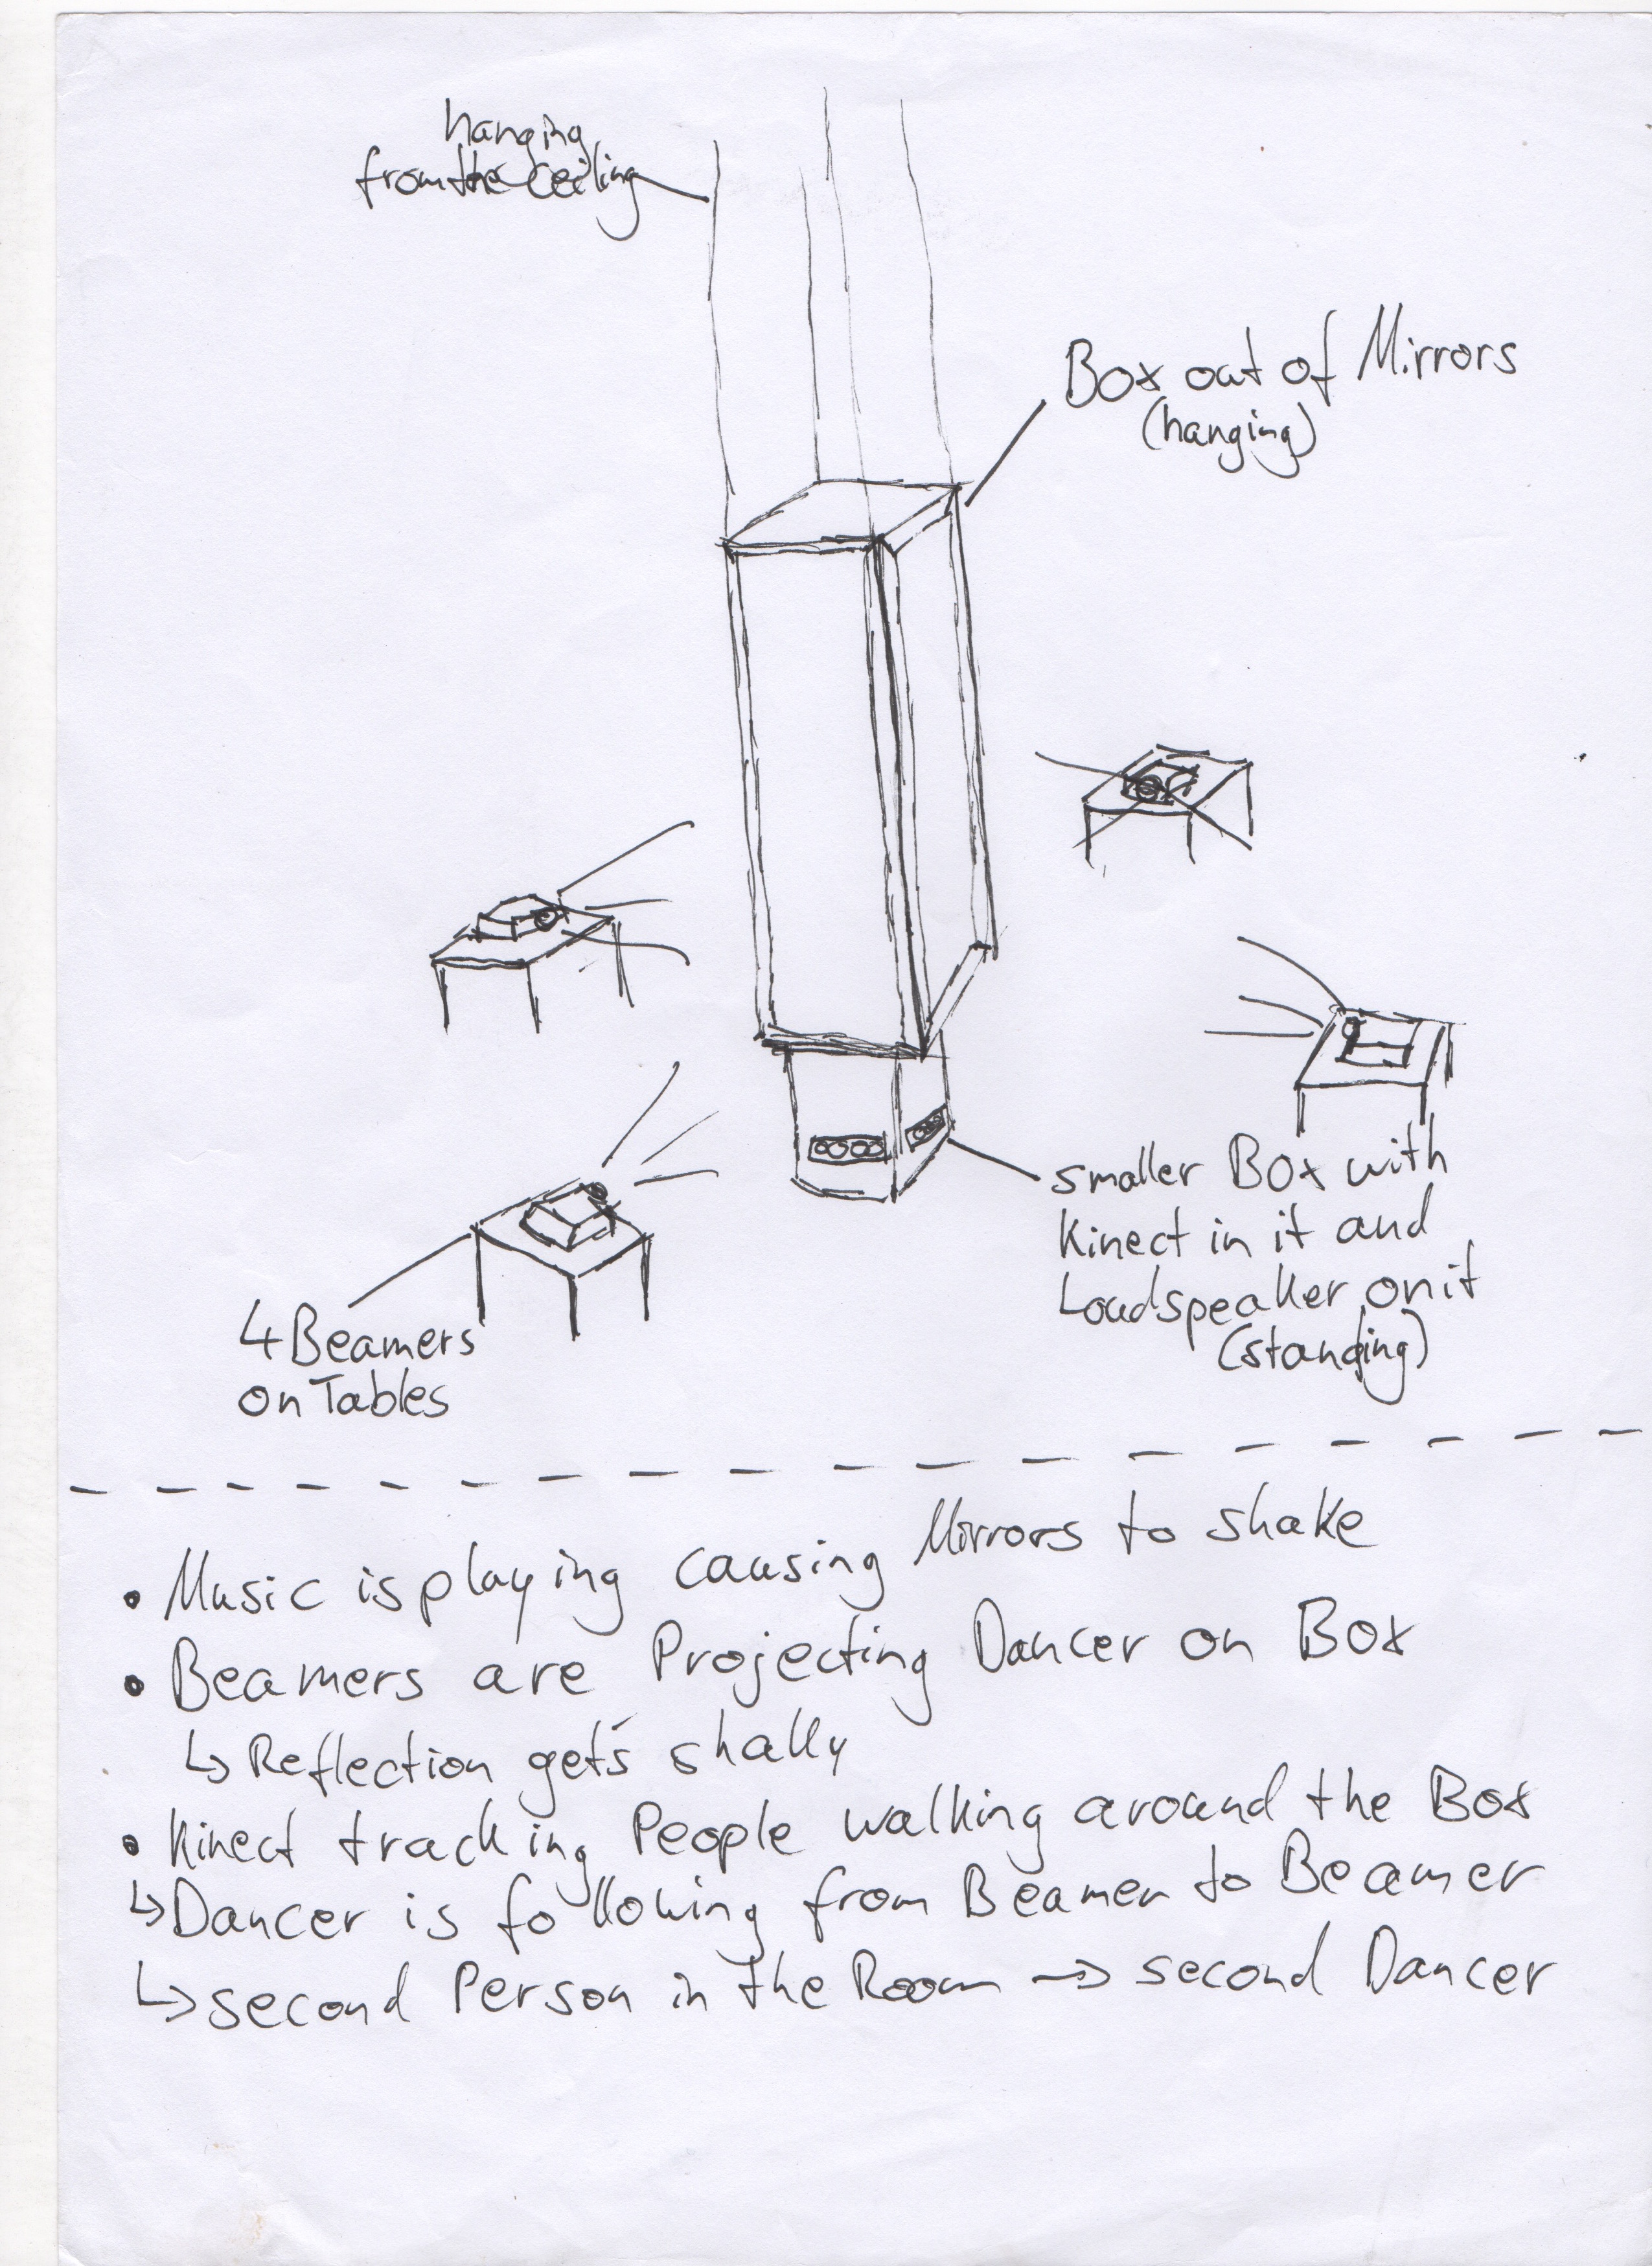 hanging
from the ceiling
Box out of Mirrors
(hanging)
smaller Box with
Kinect in it and
Loudspeaker on it
(standing)
4 Beamers
on Tables
• Music is playing causing Mirrors to shake
• Beamers are Projecting Dancer on Box
↳ Reflection get's shaky
• Kinect tracking People walking around the Box
↳ Dancer is following from Beamer to Beamer
↳ second Person in the Room → second Dancer